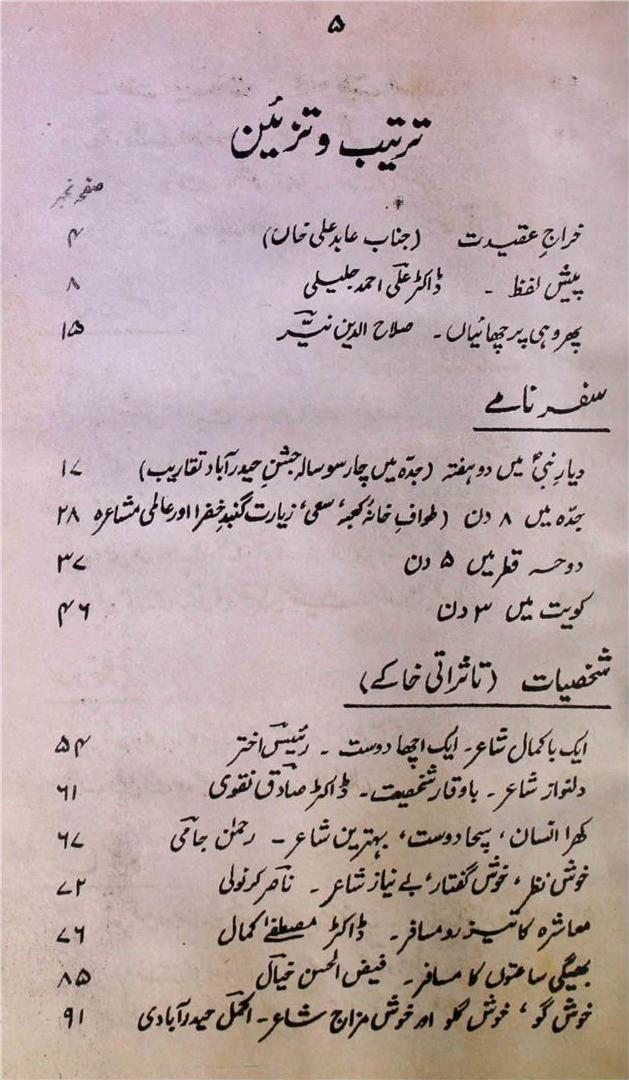 ۵
ترتیب و تزئین
صفحہ نمبر
خراجِ عقیدت (جناب عابد علی خاں) ۴
پیش لفظ ۔ ڈاکٹر علی احمد جلیلی ۸
پھر وہی پرچھائیاں ۔ صلاح الدین نیّر ۱۵
سفر نامے
دیارِ نبیؐ میں دو ہفتہ (جدّہ میں چار سو سالہ جشنِ حیدرآباد تقاریب) ۱۷
جدّہ میں ۸ دن (طوافِ خانۂ کعبہ، سعی، زیارت گنبدِ خضرا اور عالمی مشاعرہ ۲۸
دوحہ قطر میں ۵ دن ۳۷
کویت میں ۳ دن ۴۶
شخصیات (تاثراتی خاکے)
ایک باکمال شاعر ۔ ایک اچھا دوست ۔ رئیس اختر ۵۴
دلنواز شاعر ۔ باوقار شخصیت ۔ ڈاکٹر صادق نقوی ۶۱
کھرا انسان، سچا دوست، بہترین شاعر ۔ رحمٰن جامی ۶۷
خوش نظر، خوش گفتار، بے نیاز شاعر ۔ ناصر کرنولی ۷۲
معاشرہ کا تیز رو مسافر ۔ ڈاکٹر مصطفیٰ کمال ۷۶
بھیگی ساعتوں کا مسافر ۔ فیض الحسن خیال ۸۵
خوش گو، خوش گلو اور خوش مزاج شاعر ۔ اکمل حیدرآبادی ۹۱